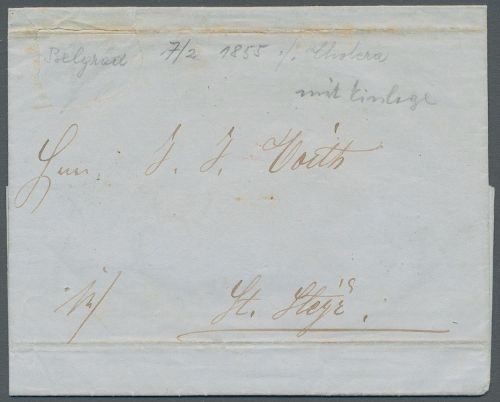 Belgrad 7/2 1855 i/. Cholera
mit Einlage
Herrn J. J. Voith
in/ St.